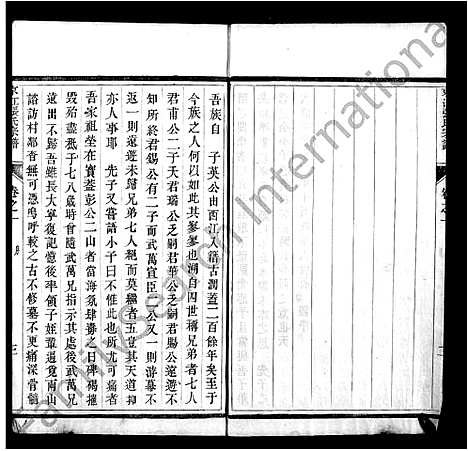 吾族自　子英公由西江入籍古潤蓋二百餘年矣至于
今族之人何以如此其寥寥也溯自四世稱兄弟者七人
君甫公二子天君瑞公乏嗣君華公乏嗣君賜公遠遊不
知所終君錫公有二子而武萬宣臣二公又一則游墓不
返一則遠遊未歸兄弟七人絕而莫繼者五豈其天道抑
亦人事耶　先子又嘗語小子曰不惟此也尤可痛者
吾家祖塋在寶蓋彭公二山者當海氛肆毒之日碑碣摧
毀殆盡抵于七八歲時會隨武萬兄指示其處後武萬兄
遠出不歸吾雖長大寧復記憶後率領子姪輩遍覓兩山
諮訪村鄰杳無可憑嗚呼較之古不修墓不更痛深骨髓
京江張氏宗譜
卷之一
三
FamilySearch International